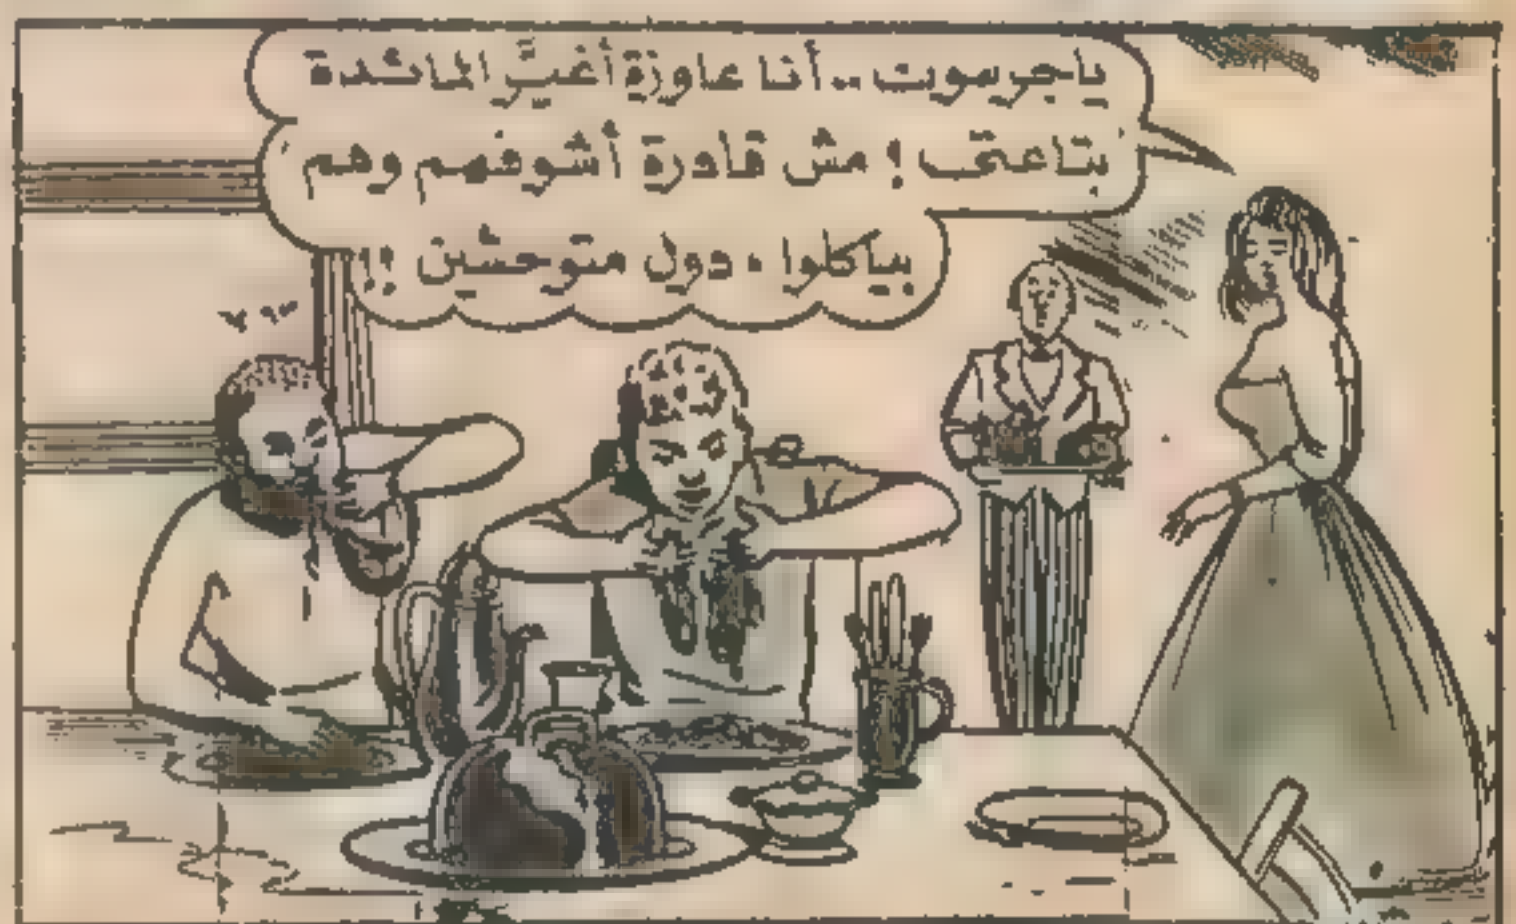 ياجرموت .. أنا عاوزة أغيَّر المائدة
بتاعتى ! مش قادرة أشوفهم وهم
بياكلوا ، دول متوحشين !!